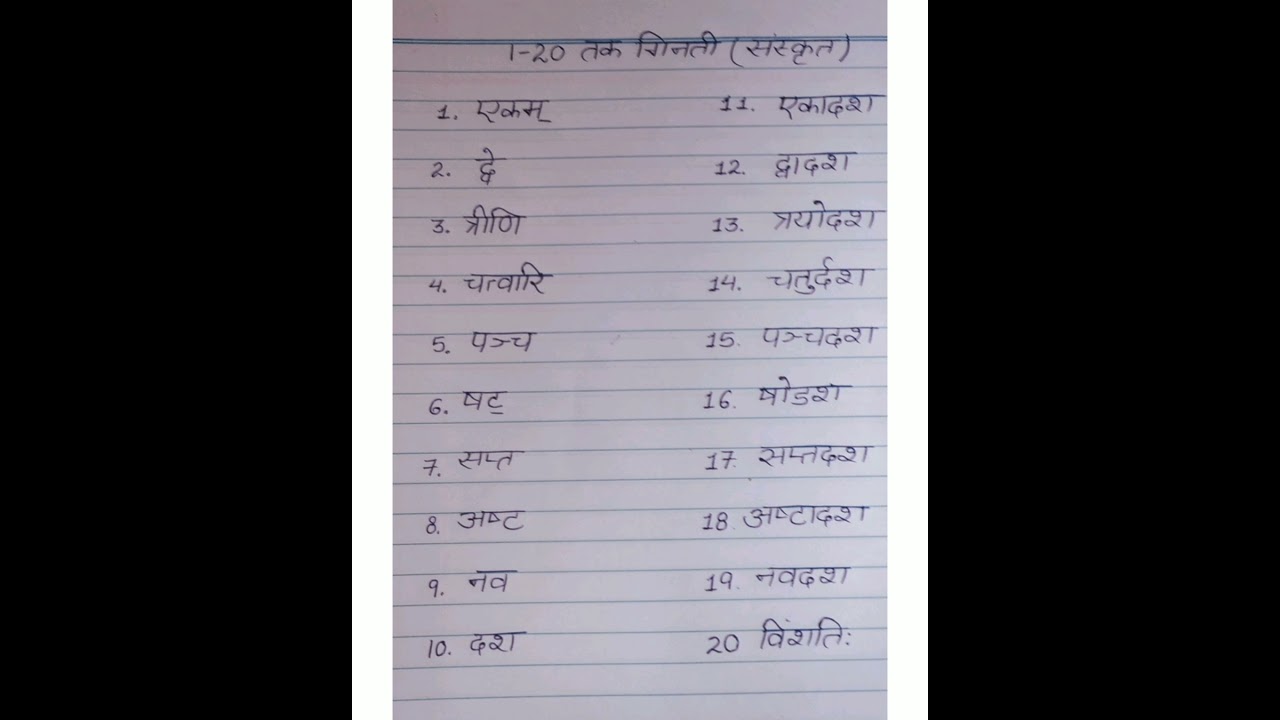 1-20 तक गिनती (संस्कृत)
1. एकम् 11. एकादश
2. द्वे 12. द्वादश
3. त्रीणि 13. त्रयोदश
4. चत्वारि 14. चतुर्दश
5. पञ्च 15. पञ्चदश
6. षट् 16. षोडश
7. सप्त 17. सप्तदश
8. अष्ट 18. अष्टादश
9. नव 19. नवदश
10. दश 20 विंशतिः